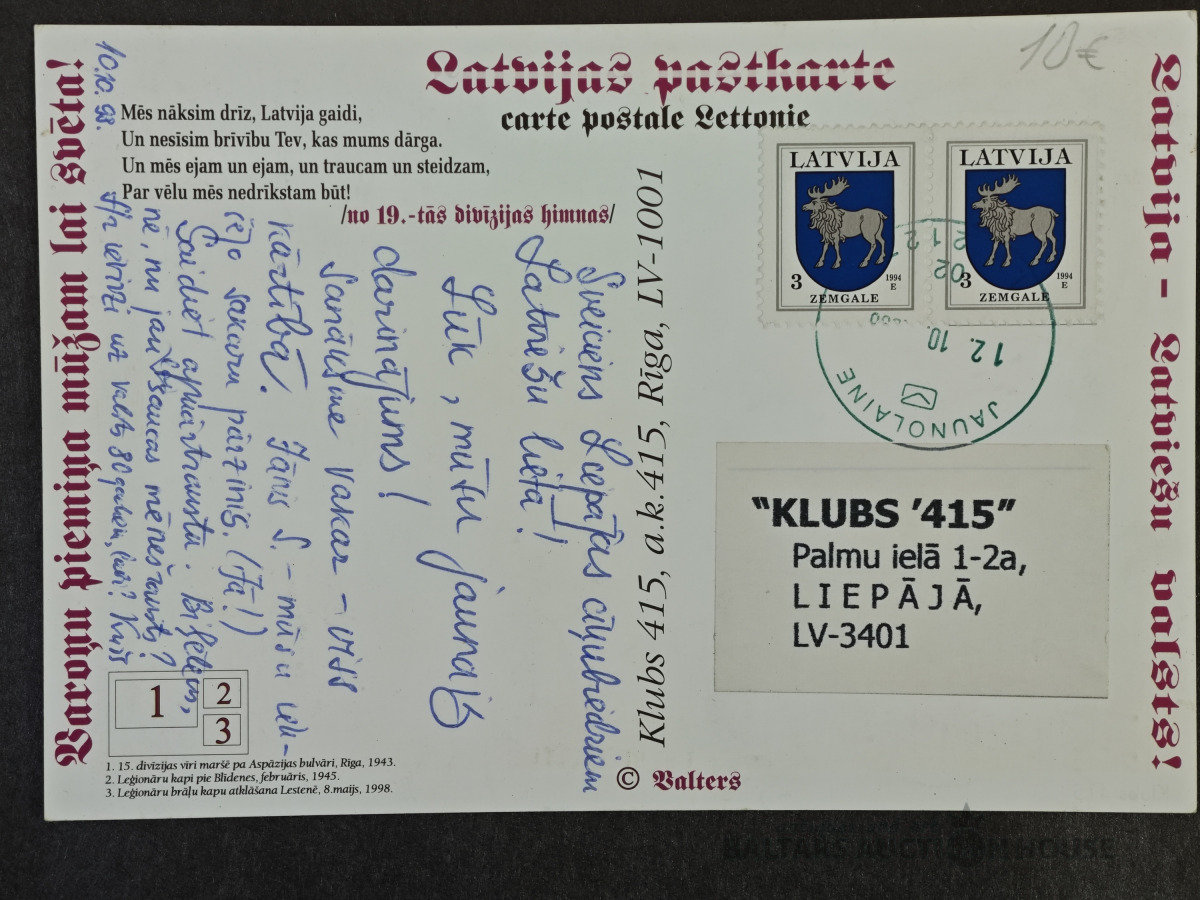 Latvijas pastkarte
carte postale Lettonie
10€
Mēs nāksim drīz, Latvija gaidi,
Un nesīsim brīvību Tev, kas mums dārga.
Un mēs ejam un ejam, un traucam un steidzam,
Par vēlu mēs nedrīkstam būt!
/no 19.-tās divīzijas himnas/
Varoņu piemiņa mūžam lai svēta!
10.10.98.
Sveiciens Liepājas cīņubiedriem
Latviešu lietā!
Lūk, mūsu jaunais
darinājums!
Sanāksme vakar – viss
kārtībā. Jānis S. – mūsu iek-
šējo sakaru pārzinis. (Jā!)
Gaidiet apkārtrakstu.
nē, nu jau mēnešraksts?
uz valsts 80 gadiem,
Klubs 415, a.k.415, Rīga, LV-1001
LATVIJA
3
1994
E
ZEMGALE
LATVIJA
3
1994
E
ZEMGALE
JAUNOLAINE
12. 10
02
212
"KLUBS '415"
Palmu ielā 1-2a,
LIEPĀJĀ,
LV-3401
Latvija - Latviešu valsts!
1
2
3
1. 15. divīzijas vīri maršē pa Aspāzijas bulvāri, Rīga, 1943.
2. Leģionāru kapi pie Blīdenes, februāris, 1945.
3. Leģionāru brāļu kapu atklāšana Lestenē, 8.maijs, 1998.
© Valters
BALTARS AUCTION HOUSE